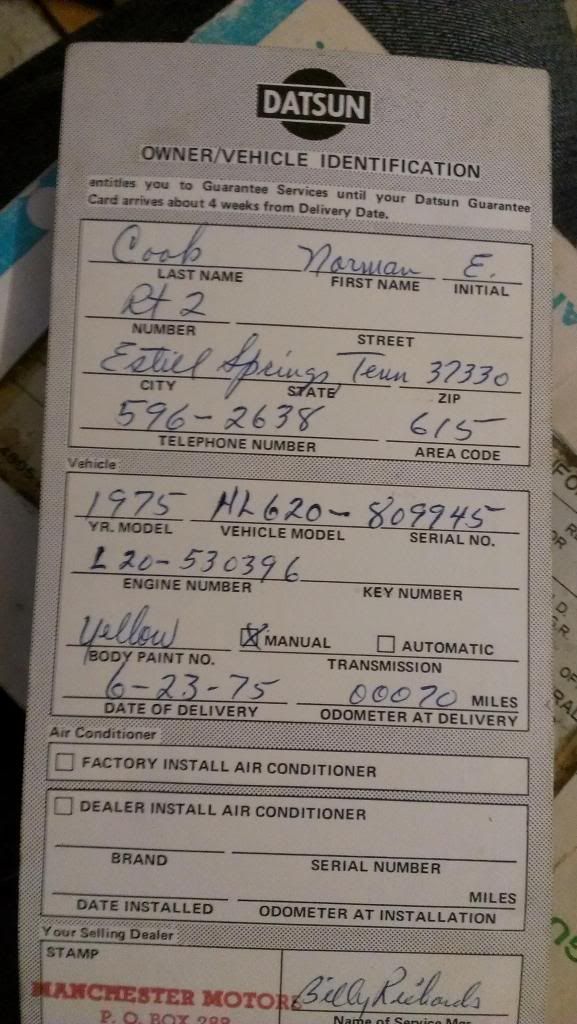 DATSUN
OWNER/VEHICLE IDENTIFICATION
entitles you to Guarantee Services until your Datsun Guarantee
Card arrives about 4 weeks from Delivery Date.
Cook Norman E.
LAST NAME FIRST NAME INITIAL
Rt 2
NUMBER STREET
Estill Springs, Tenn 37330
CITY STATE ZIP
596-2638 615
TELEPHONE NUMBER AREA CODE
Vehicle
1975 HL620-809945
YR. MODEL VEHICLE MODEL SERIAL NO.
L20-530396
ENGINE NUMBER KEY NUMBER
Yellow MANUAL AUTOMATIC
BODY PAINT NO. TRANSMISSION
6-23-75 00070 MILES
DATE OF DELIVERY ODOMETER AT DELIVERY
Air Conditioner
FACTORY INSTALL AIR CONDITIONER
DEALER INSTALL AIR CONDITIONER
BRAND SERIAL NUMBER
MILES
DATE INSTALLED ODOMETER AT INSTALLATION
Your Selling Dealer
STAMP
MANCHESTER MOTORS Billy Richards
P. O. BOX 288 Name of Service Mgr.